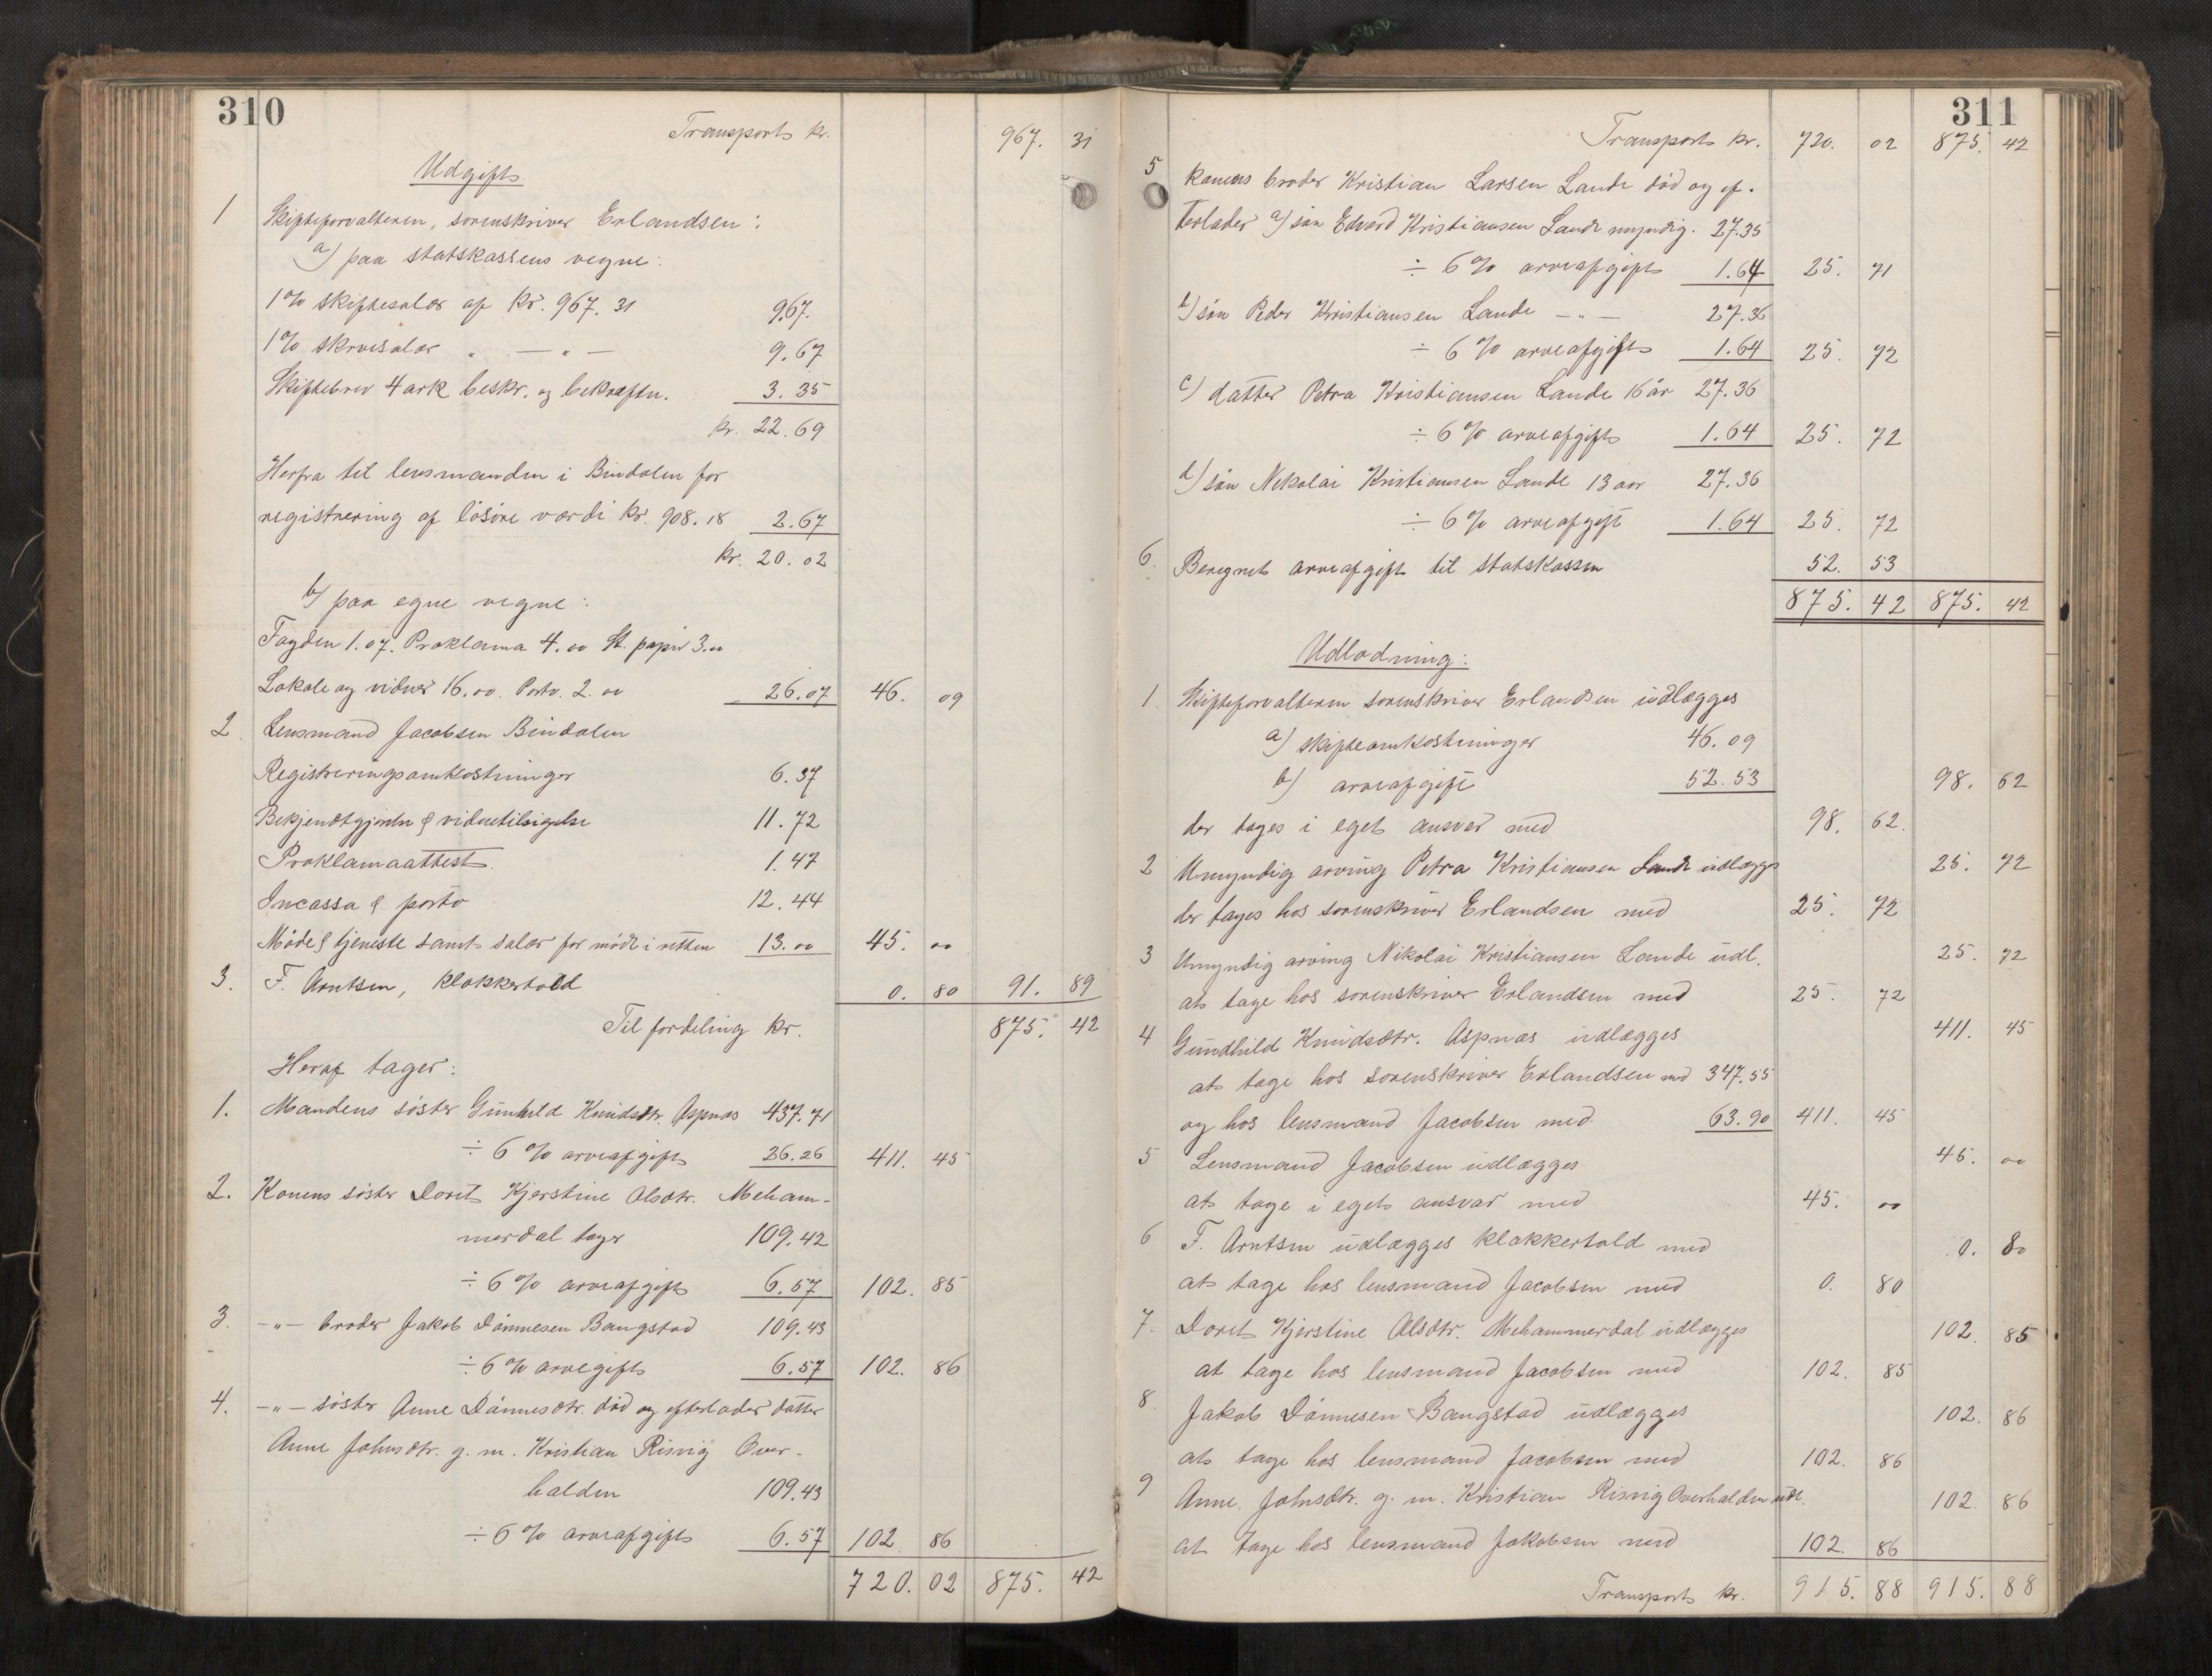 310
Transport kr. 967. 31
Udgift.
1 Skifteforvalteren, sorenskriver Erlandsen:
a) paa statskassens vegne:
1% skiftesalær af kr. 967.31 9.67.
1% skrivesalær " — " — 9.67
Skiftebrev 4 ark beskr. og bekræftn. 3.35
kr. 22.69
Herfra til lensmanden i Bindalen for
registrering af løsøre værdi kr. 908.18 2.67
kr. 20.02
b) paa egne vegne:
Fogden 1.07. Proklama 4.00 St. papir 3.00
Lokale og vidner 16.00. Porto. 2.00 26.07 46. 09
2. Lensmand Jacobsen Bindalen
Registreringsomkostninger 6.37
Bekjendtgjørelse & vidnetilsigelse 11.72
Proklamaattest 1.47
Incasso & porto 12.44
Møde & tjeneste samt salær for møde i retten 13.00 45. 00
3. F. Arntsen, klokkertold 0. 80 91. 89
Til fordeling kr. 875. 42
Heraf tager:
1. Mandens søster Gunhild Knudsdtr. Aspnæs 437.71
÷ 6% arveafgift 26.26 411. 45
2. Konens søster Dorit Kjerstine Olsdtr. Meham-
merdal tager 109.42
÷ 6% arveafgift 6.57 102. 85
3. — " — broder Jakob Dønnesen Bangstad 109.43
÷ 6% arvegift 6.57 102. 86
4. — " — søster Anne Dønnesdtr. død og efterlader datter
Anne Johnsdtr. g. m. Kristian Risvig Over-
halden 109.43
÷ 6% arveafgift 6.57 102 86
720. 02 875. 42
311
Transport kr. 720. 02 875. 42
5 Konens broder Kristian Larsen Lande død og ef-
terlader a) søn Edvard Kristiansen Lande myndig. 27.35
÷ 6% arveafgift 1.64 25. 71
b) søn Peder Kristiansen Lande — " — 27.36
÷ 6% arveafgift 1.64 25. 72
c) datter Petra Kristiansen Lande 16 år 27.36
÷ 6% arveafgift 1.64 25. 72
d) søn Nikolai Kristiansen Lande 13 aar 27.36
÷ 6% arveafgift 1.64 25. 72
6. Beregnet arveafgift til statskassen 52. 53
875. 42 875. 42
Udlodning:
1. Skifteforvalteren sorenskriver Erlandsen udlægges
a) skifteomkostninger 46.09
b) arveafgift 52.53 98. 62
der tages i eget ansvar med 98. 62.
2 Umyndig arving Petra Kristiansen Lande udlægges 25. 72
der tages hos sorenskriver Erlandsen med 25. 72
3 Umyndig arving Nikolai Kristiansen Lande udl. 25. 72
at tage hos sorenskriver Erlandsen med 25. 72
4 Gundhild Knudsdtr. Aspnæs udlægges 411. 45
at tage hos sorenskriver Erlandsen med 347.55
og hos lensmand Jacobsen med 63.90 411. 45
5 Lensmand Jacobsen udlægges 45. 00
at tage i eget ansvar med 45. 00
6 F. Arntsen udlægges klokkertold med 0. 80
at tage hos lensmand Jacobsen med 0. 80
7. Dorit Kjerstine Olsdtr. Mehammerdal udlægges 102. 85
at tage hos lensmand Jacobsen med 102. 85
8 Jakob Dønnesen Bangstad udlægges 102. 86
at tage hos lensmand Jacobsen med 102. 86
9 Anne Johnsdtr. g. m. Kristian Risvig Overhalden udl. 102. 86
at tage hos lensmand Jakobsen med 102. 86
Transport kr. 915. 88 915. 88